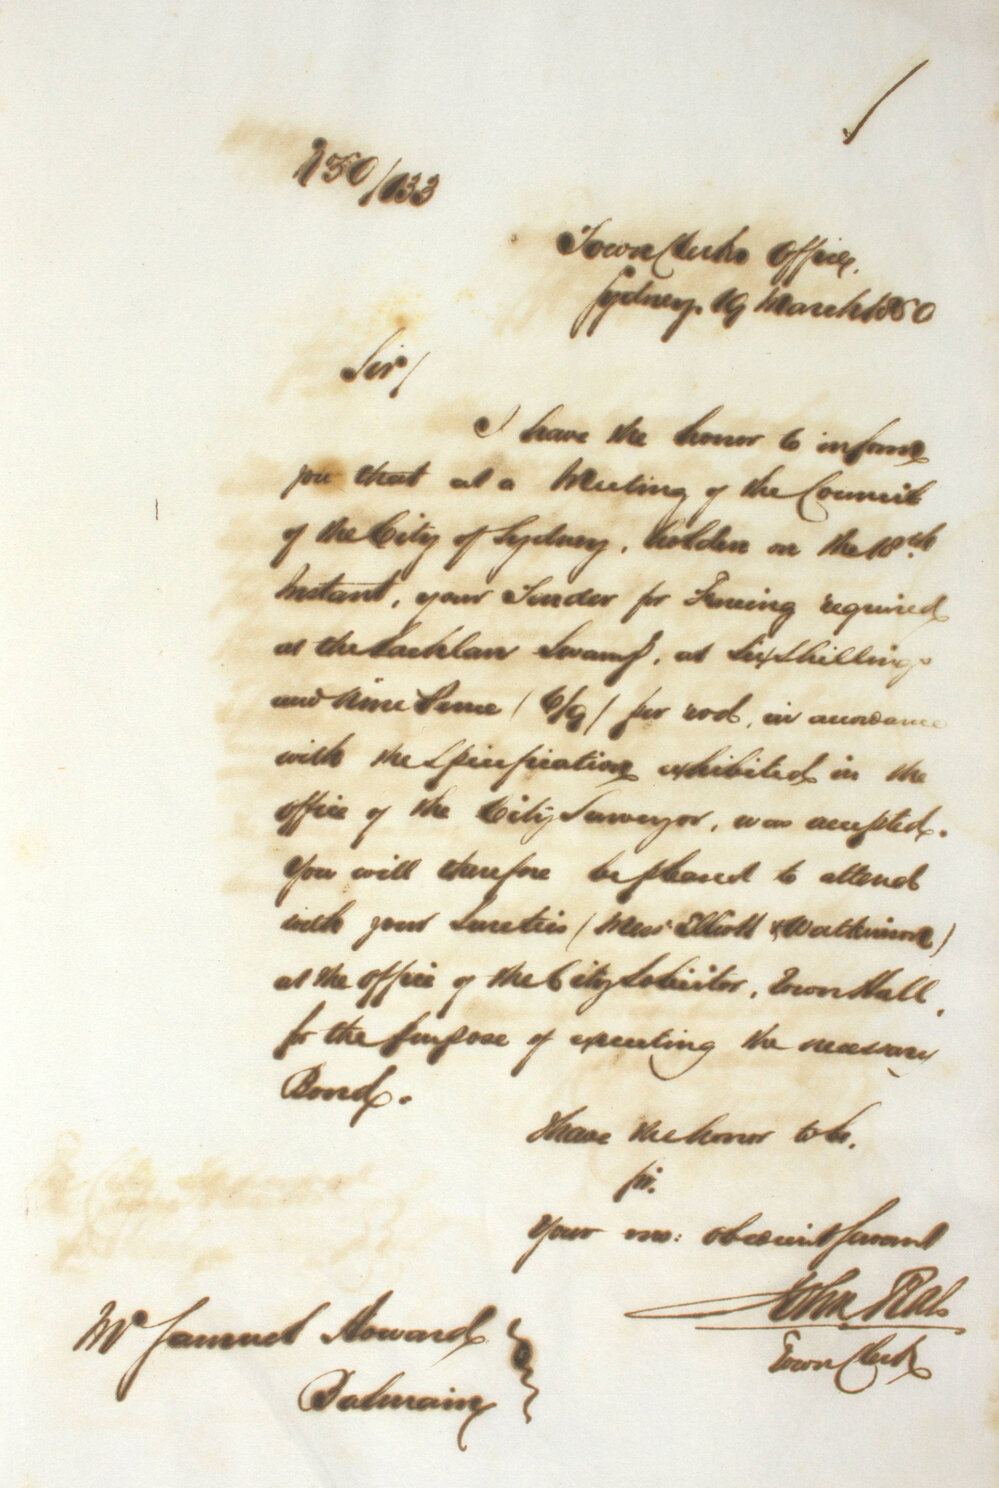 250/133
Town Clerks Office,
Sydney, 19 March 1850
Sir/
I have the honor to inform
you that at a Meeting of the Council
of the City of Sydney, holden on the 18th
Instant, your Tender for Fencing required
at the Lachlan Swamp, at Six Shillings
and Nine Pence (6/9) per rod, in accordance
with the Specification exhibited in the
Office of the City Surveyor, was accepted.
You will therefore be pleased to attend
with your Sureties (Mess. Elliott & Watkinson)
at the Office of the City Solicitor, Town Hall,
for the purpose of executing the necessary
Bond.
I have the honor to be,
Sir.
Your mo: obedient Servant
John Rae
Town Clerk
Mr Samuel Howard
Balmain